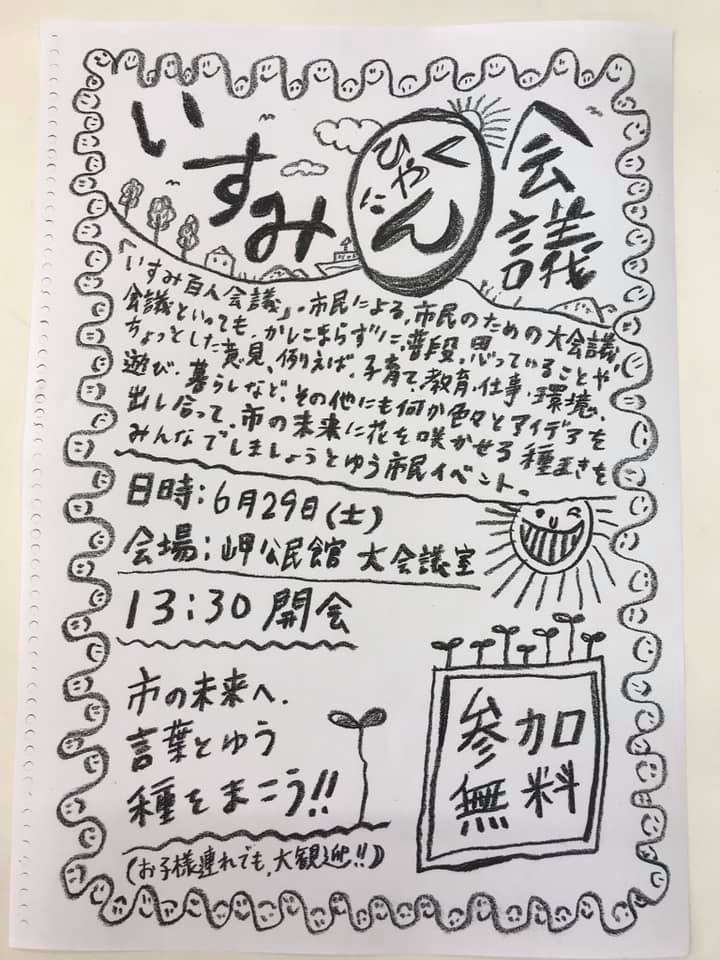 いすみ
ひゃくにん
会議
「いすみ百人会議」。市民による、市民のための大会議
会議といっても、かしこまらずに、普段、思っていることや
ちょっとした意見、例えば、子育て、教育、仕事、環境、
遊び、暮らしなど、その他にも何か色々とアイデアを
出し合って、市の未来に花を咲かせる種まきを
みんなでしましょうとゆう市民イベント。
日時:6月29日(土)
会場:岬公民館 大会議室
13:30開会
市の未来へ、
言葉とゆう
種をまこう!!
(お子様連れでも、大観迎!!)
参加
無料